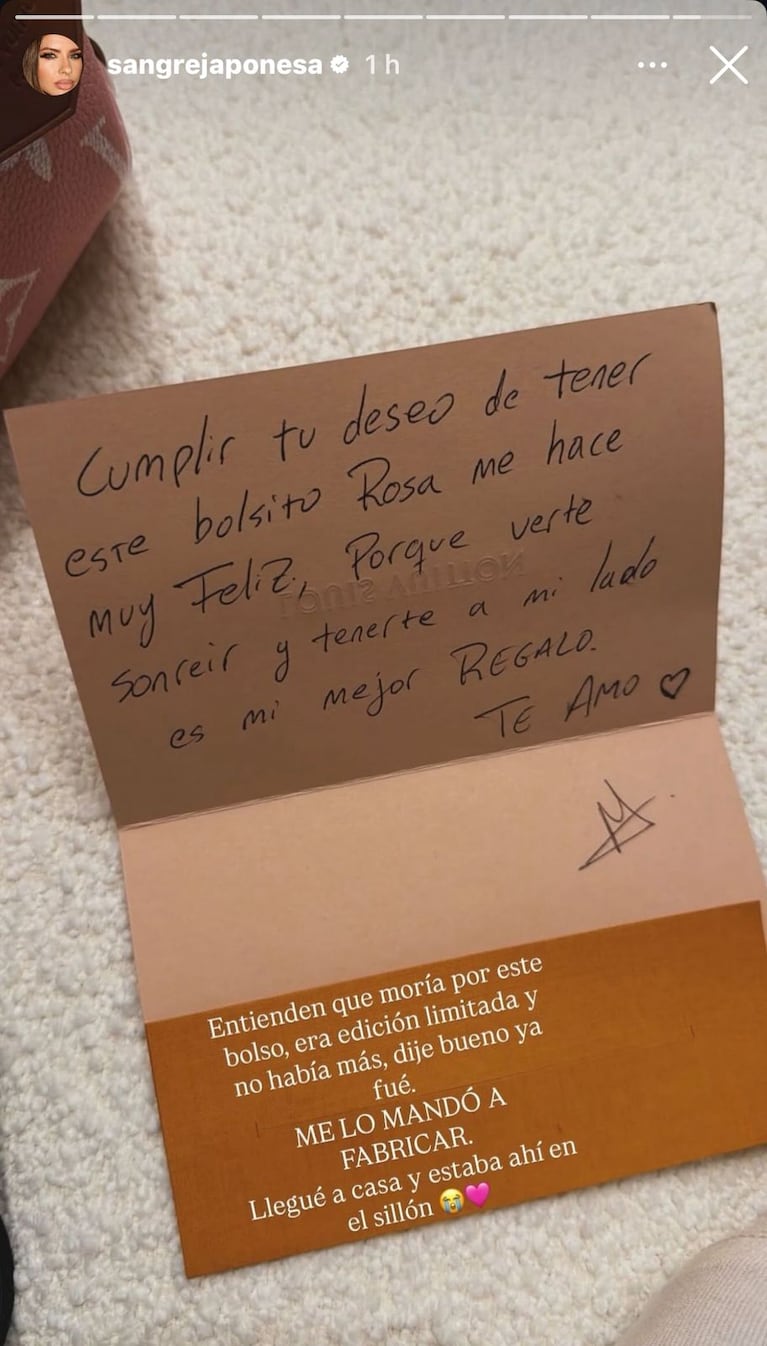 sangrejaponesa 1 h
Cumplir tu deseo de tener
este bolsito Rosa me hace
muy Feliz, Porque verte
LOUIS VUITTON
sonreir y tenerte a mi lado
es mi mejor REGALO.
TE AMO ♡
Entienden que moría por este
bolso, era edición limitada y
no había más, dije bueno ya
fué.
ME LO MANDÓ A
FABRICAR.
Llegué a casa y estaba ahí en
el sillón 😭💗